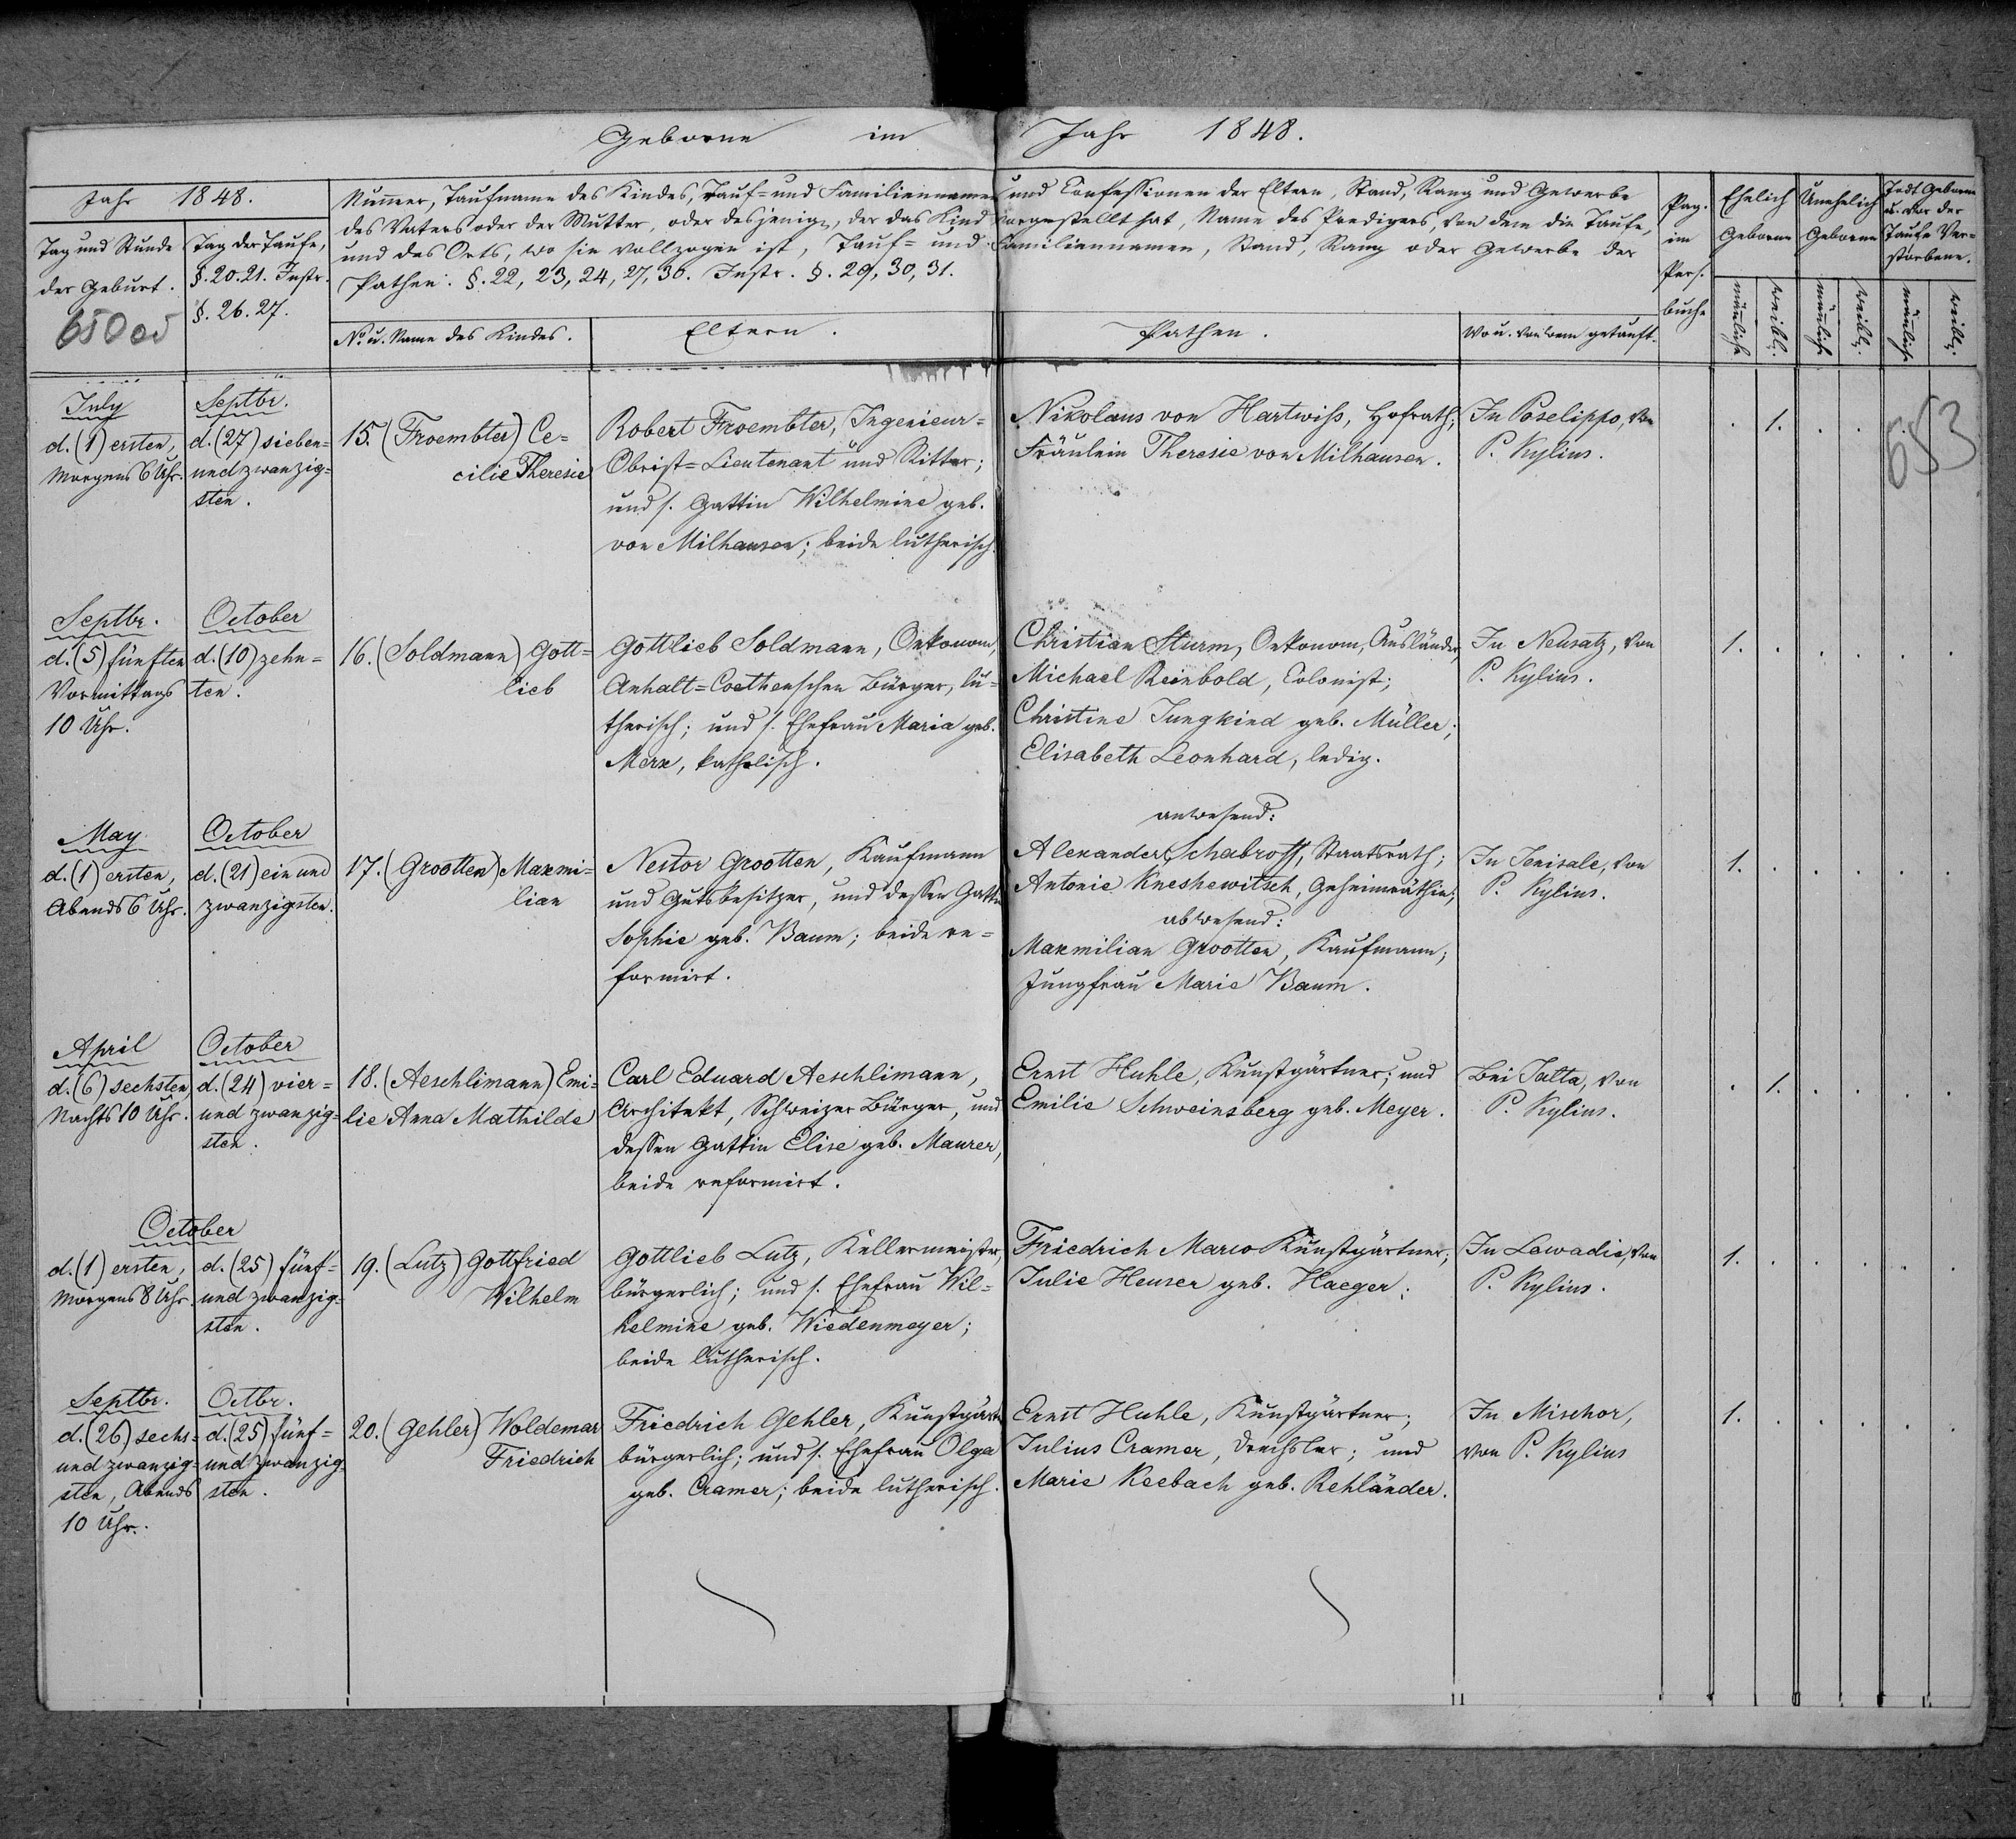 Geborne im Jahr 1848.
Jahr 1848.
Tag und Stunde
der Geburt.
650 об
Tag der Taufe,
§. 20. 21. Instr.
§. 26. 27.
Nummer, Taufname des Kindes, Tauf= und Familiennamen und Confessionen der Eltern, Stand, Rang und Gewerbe
des Vaters oder der Mutter, oder desjenigen, der das Kind vorgestellt hat, Name des Predigers, von dem die Taufe,
und des Orts, wo sie vollzogen ist, Tauf= und Familiennamen, Stand, Rang oder Gewerbe der
Pathen. §. 22, 23, 24, 27, 30. Instr. §. 29, 30, 31.
No. u. Name des Kindes.
Eltern.
Pathen.
Wo u. von wem getauft.
Pag.
im
Pers.
buche
Ehelich
Geborne
Unehelich
Geborne
Todt Geborne
u. vor der
Taufe Ver=
storbene.
männlich
weibl.
männlich
weibl.
männlich
weibl.
653
July
d. (1) ersten,
Morgens 6 Uhr.
Septbr.
d. (27) sieben=
und zwanzig=
sten.
15. (Froembter) Ce=
cilie Theresie
Robert Froembter, Ingenieur=
Obrist=Lieutenant und Ritter;
und s. Gattin Wilhelmine geb.
von Milhausen; beide lutherisch.
Nikolaus von Hartwiss, Hofrath;
Fräulein Theresie von Milhausen.
In Poselippo, von
P. Kylius.
. 1. . .
Septbr.
d. (5) fünften
Vormittags
10 Uhr.
October
d. (10) zehn=
ten.
16. (Soldmann) Gott=
lieb
Gottlieb Soldmann, Oekonom,
Anhalt=Coethenschen Bürger, lu=
therisch; und s. Ehefrau Maria geb.
Merx, katholisch.
Christian Sturm, Oekonom, Ausländer,
Michael Reinbold, Colonist;
Christine Jungkind geb. Müller;
Elisabeth Leonhard, ledig.
In Neusatz, von
P. Kylius.
1. . . . . .
May
d. (1) ersten,
Abends 6 Uhr.
October
d. (21) ein und
zwanzigsten.
17. (Grootten) Maxmi=
lian
Nestor Grootten, Kaufmann
und Gutsbesitzer, und dessen Gattin
Sophie geb. Baum; beide re=
formirt.
anwesend:
Alexander Schabroff, Staatsrath;
Antonie Kneshewitsch, Geheimräthin;
abwesend:
Maxmilian Grootten, Kaufmann;
Jungfrau Marie Baum.
In Jenisale, von
P. Kylius.
1. . . . . .
April
d. (6) sechsten
Nachts 10 Uhr.
October
d. (24) vier=
und zwanzig=
sten.
18. (Aeschlimann) Emi=
lie Anna Mathilde
Carl Eduard Aeschlimann,
Architekt, Schweizer Bürger, und
dessen Gattin Elise geb. Maurer,
beide reformirt.
Ernst Huhle, Kunstgärtner; und
Emilie Schweinsberg geb. Meyer.
Bei Jalta, von
P. Kylius.
. 1. . . . .
October
d. (1) ersten,
Morgens 8 Uhr
d. (25) fünf=
und zwanzig=
sten.
19. (Lutz) Gottfried
Wilhelm
Gottlieb Lutz, Kellermeister,
bürgerlich; und s. Ehefrau Wil=
helmine geb. Wiedenmeyer;
beide lutherisch.
Friedrich Marco Kunstgärtner;
Julie Heuser geb. Haeger;
In Lawadie, von
P. Kylius.
1. . . . . .
Septbr.
d. (26) sechs=
und zwanzig=
sten, Abends
10 Uhr.
Octbr.
d. (25) fünf=
und zwanzig=
sten.
20. (Gehler) Woldemar
Friedrich
Friedrich Gehler, Kunstgärtn
bürgerlich; und s. Ehefrau Olga
geb. Cramer; beide lutherisch.
Ernst Huhle, Kunstgärtner;
Julius Cramer, Drechsler; und
Marie Keebach geb. Rehländer.
In Mischor,
von P. Kylius
1. . . . . .